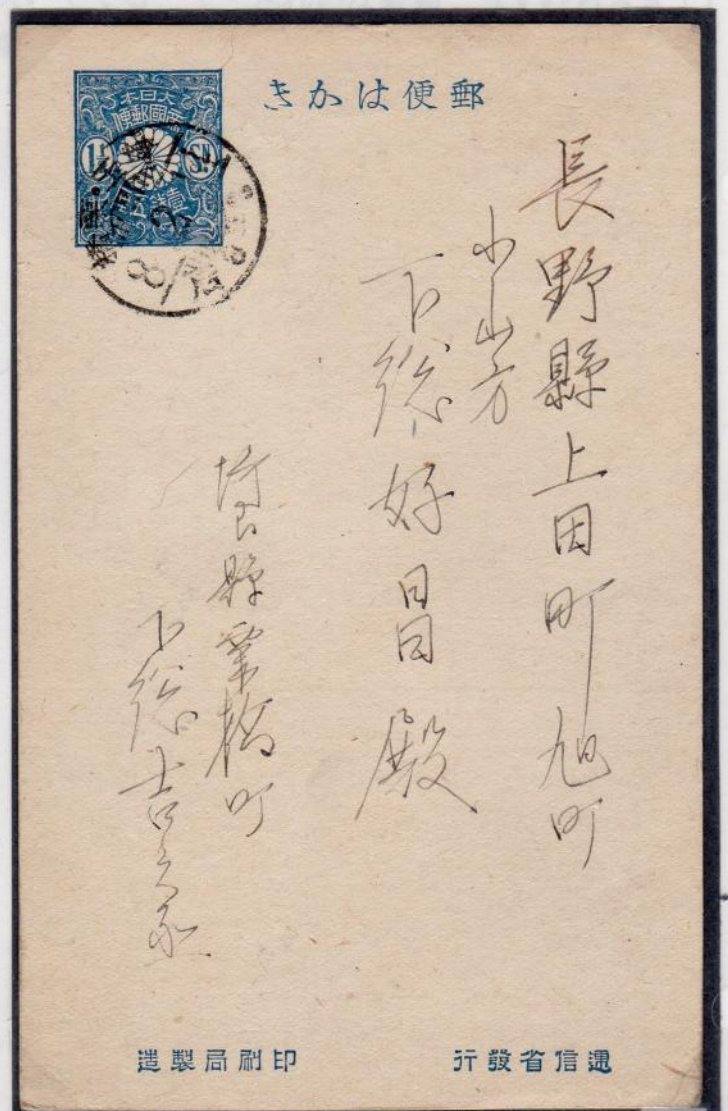 郵便はかき
大日本
帝國郵便
1½ SN
壹錢五厘
長野縣上田町旭町
小山方
下総好昌殿
埼玉縣栗橋町
下総吉之丞
遞信省發行
印刷局製造